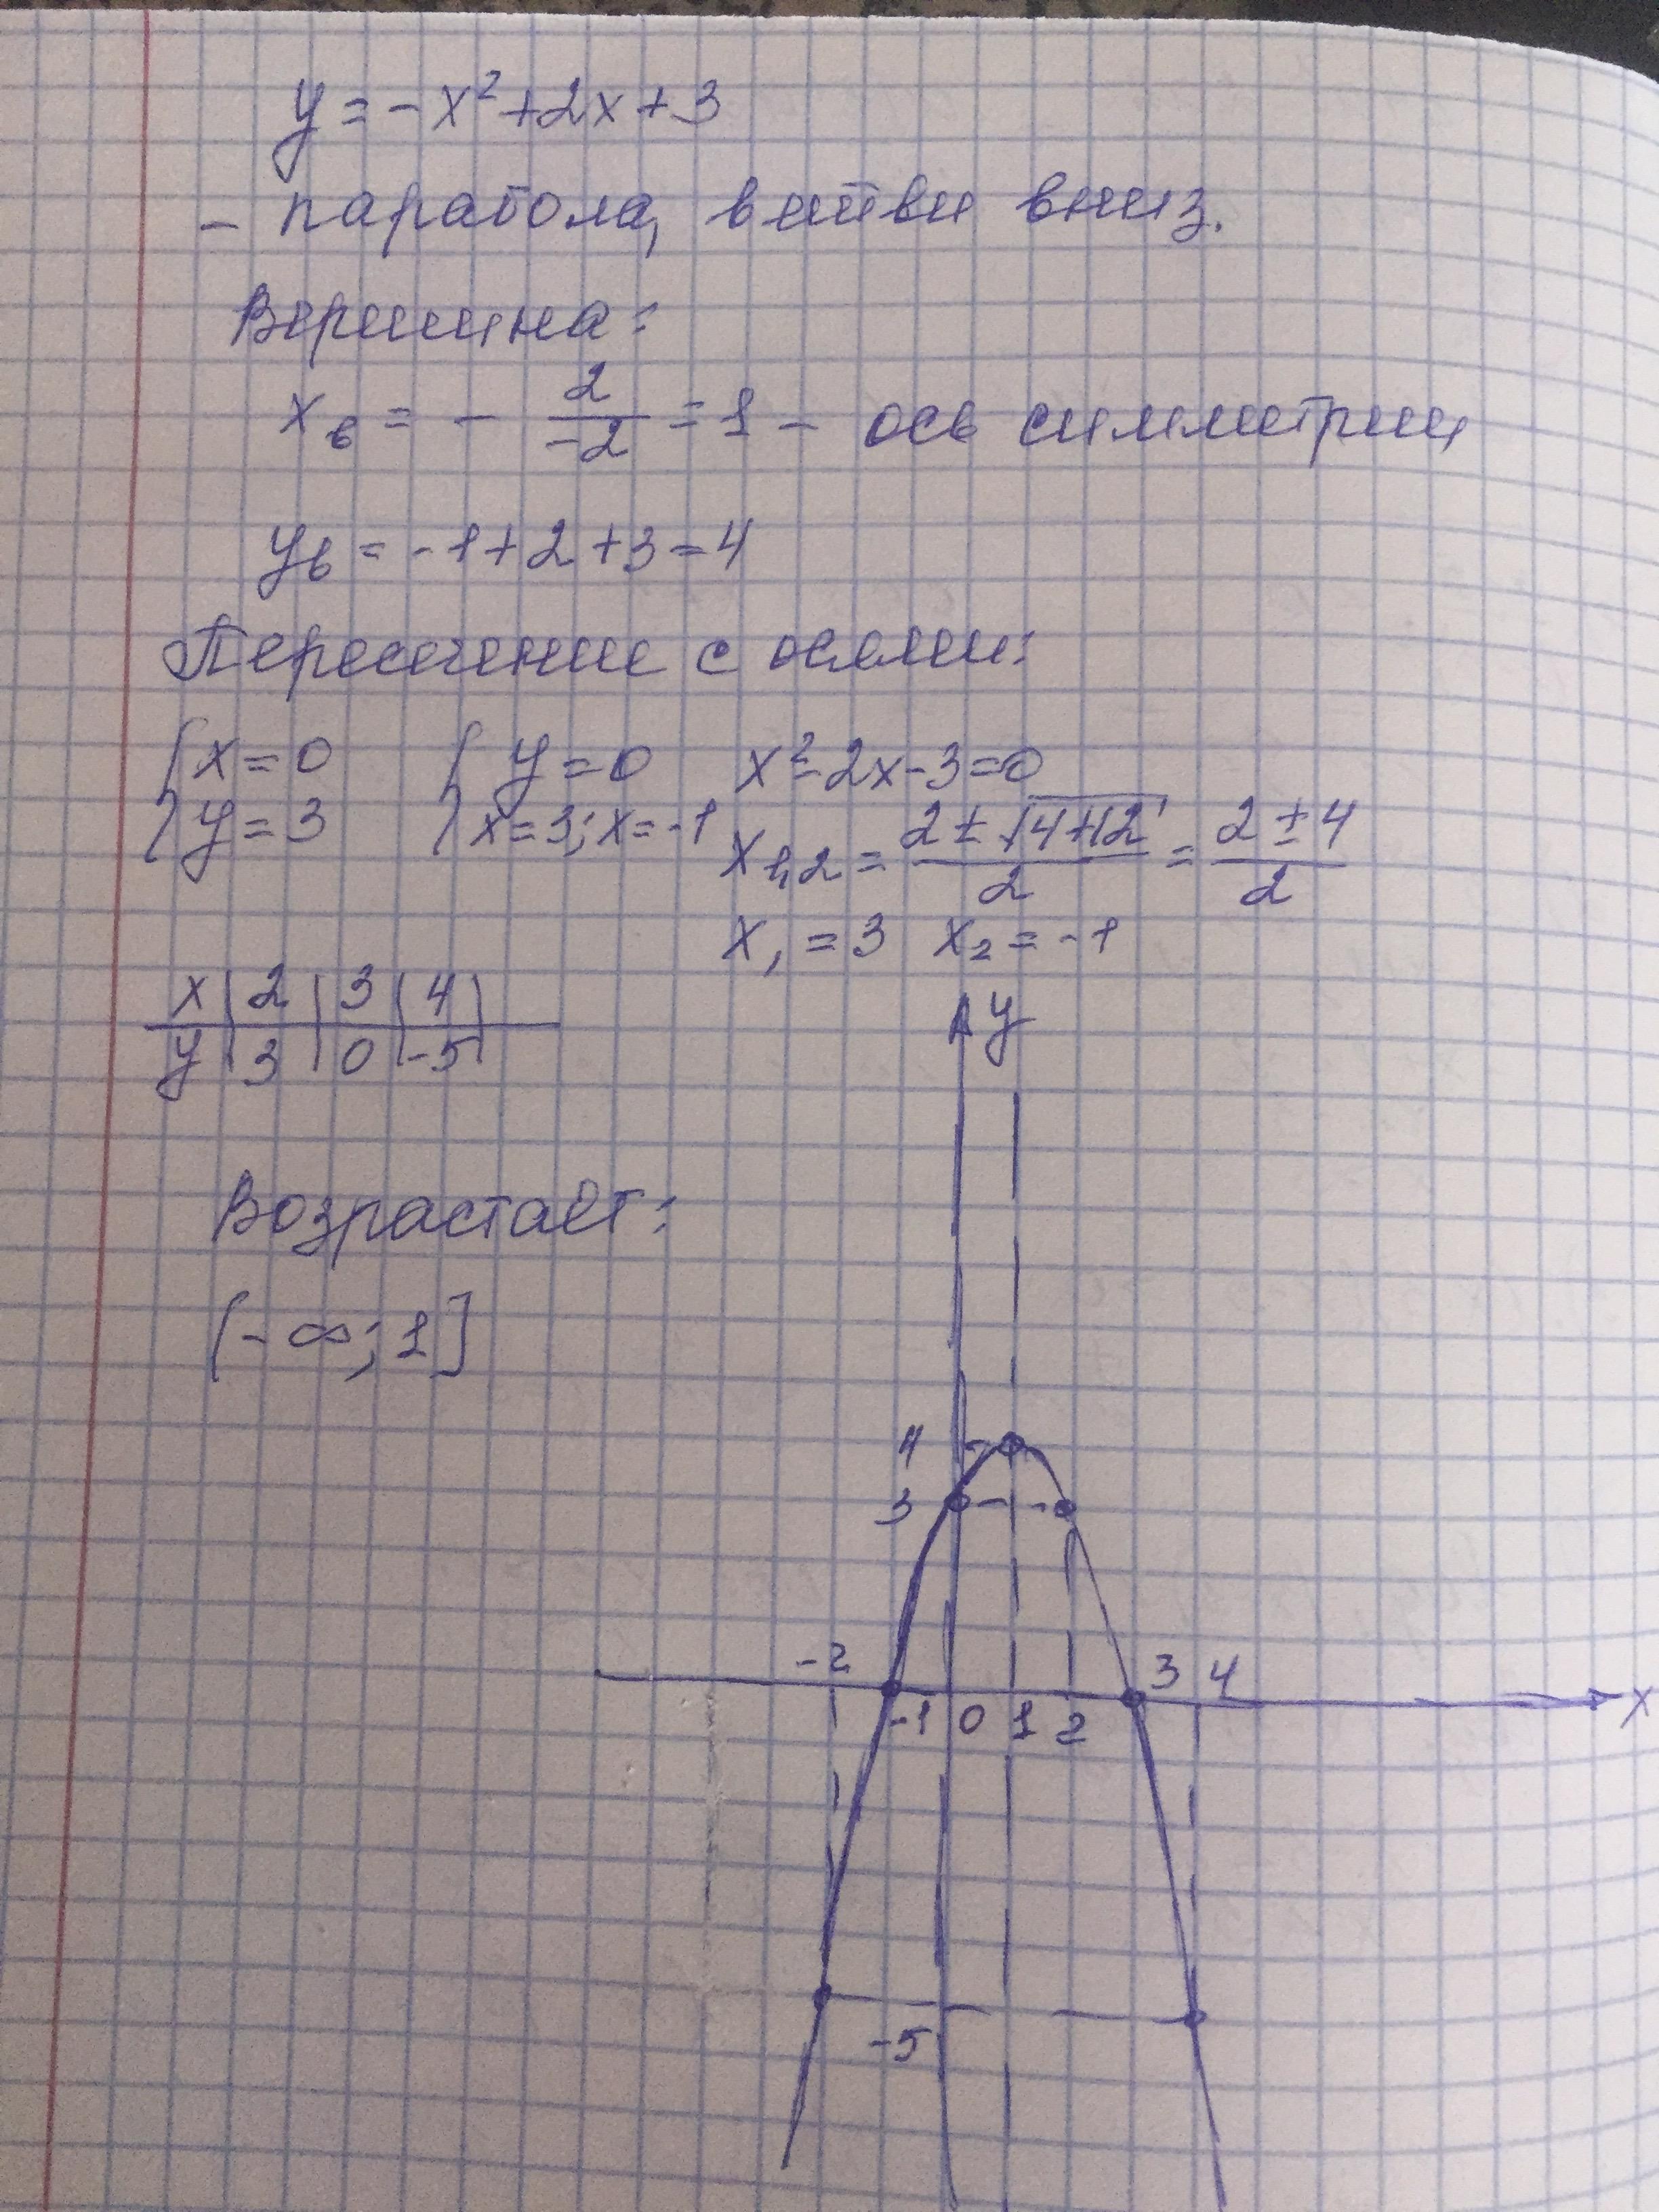 y = -x² + 2x + 3
- парабола, витви вниз.
Вершина:
xв = - 2/-2 = 1 - ось симметрии
yв = -1 + 2 + 3 = 4
Пересечение с осями:
{x = 0 {y = 0 x² - 2x - 3 = 0
y = 3 x = 3; x = -1 x1,2 = (2 ± √4+12)/2 = (2 ± 4)/2
x1 = 3 x2 = -1
x | 2 | 3 | 4 |
y | 3 | 0 | -5 |
y
Возрастает:
(-∞; 1]
4
3
-2 3 4
-1 0 1 2 x
-5